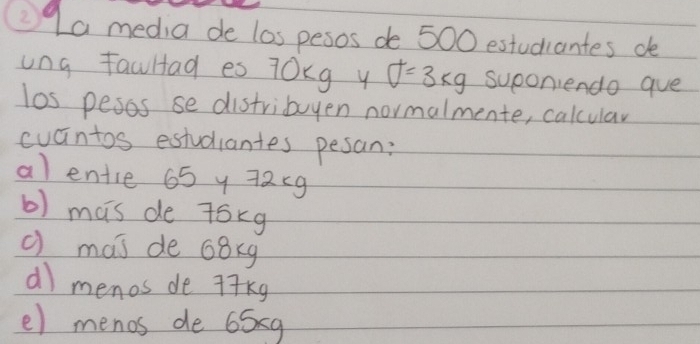 ② La media de los pesos de 500 estudiantes de
una facultad es 70kg y σ=3kg suponiendo que
los pesos se distribuyen normalmente, calcular
cuántos estudiantes pesan:
a) entre 65 y 72kg
b) más de 75kg
c) más de 68kg
d) menos de 77kg
e) menos de 65kg